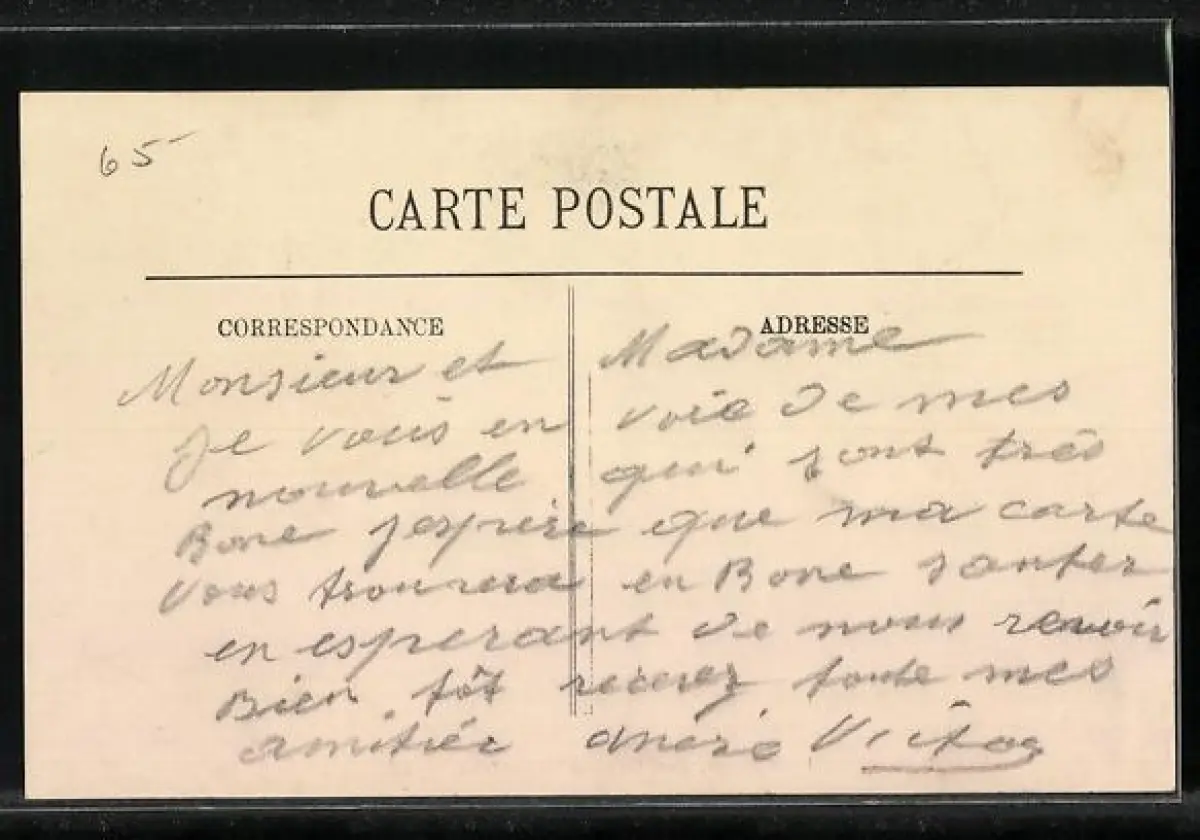 65-
CARTE POSTALE
CORRESPONDANCE
ADRESSE
Monsieur et Madame
je vous en voie de mes
nouvelle qui sont très
Bone j'espère que ma carte
vous trouvera en Bone santer
en esperant de nous revoir
Bien tôt recevez toute mes
amitiér Victor